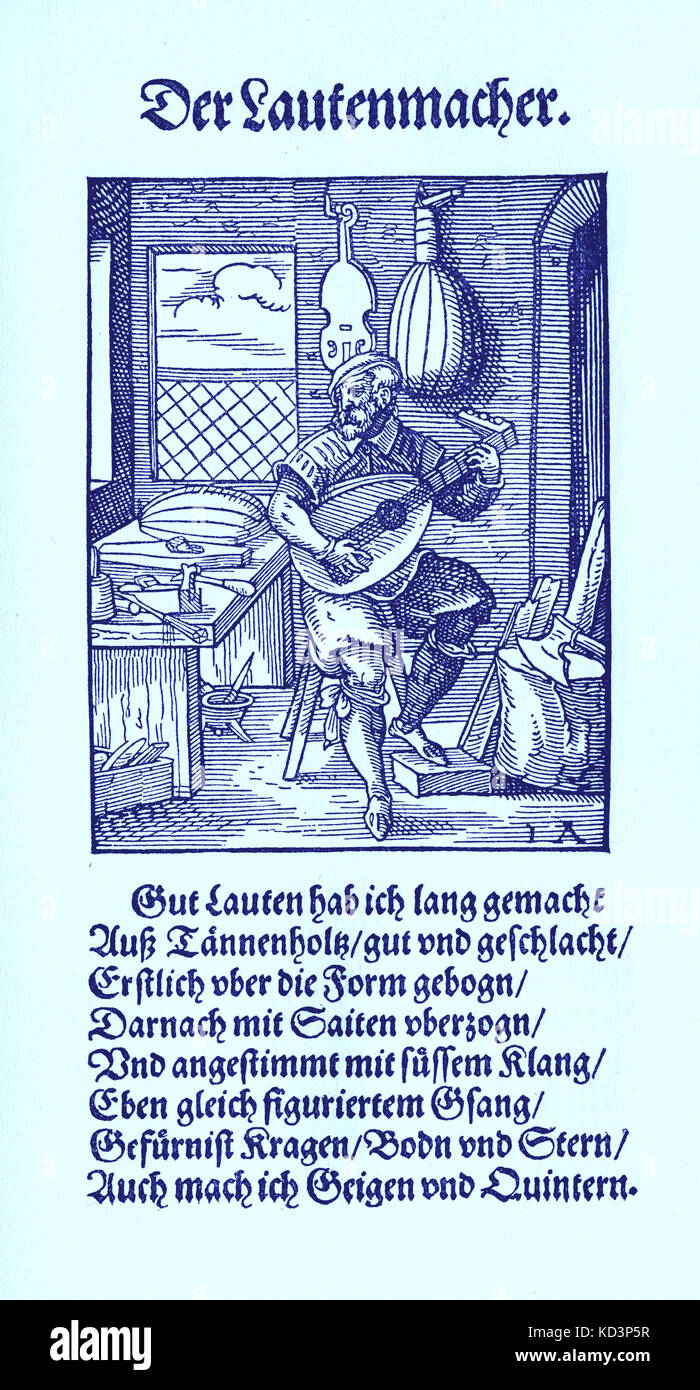 Der Lautenmacher.
IA
Gut Lauten hab ich lang gemacht
Auß Tännenholtz/gut vnd geschlacht/
Erstlich vber die Form gebogn/
Darnach mit Saiten vberzogn/
Vnd angestimmt mit süssem Klang/
Eben gleich figuriertem Gsang/
Gefürnist Kragen/Bodn vnd Stern/
Auch mach ich Geigen vnd Quintern.
alamy
Image ID: KD3P5R
www.alamy.com